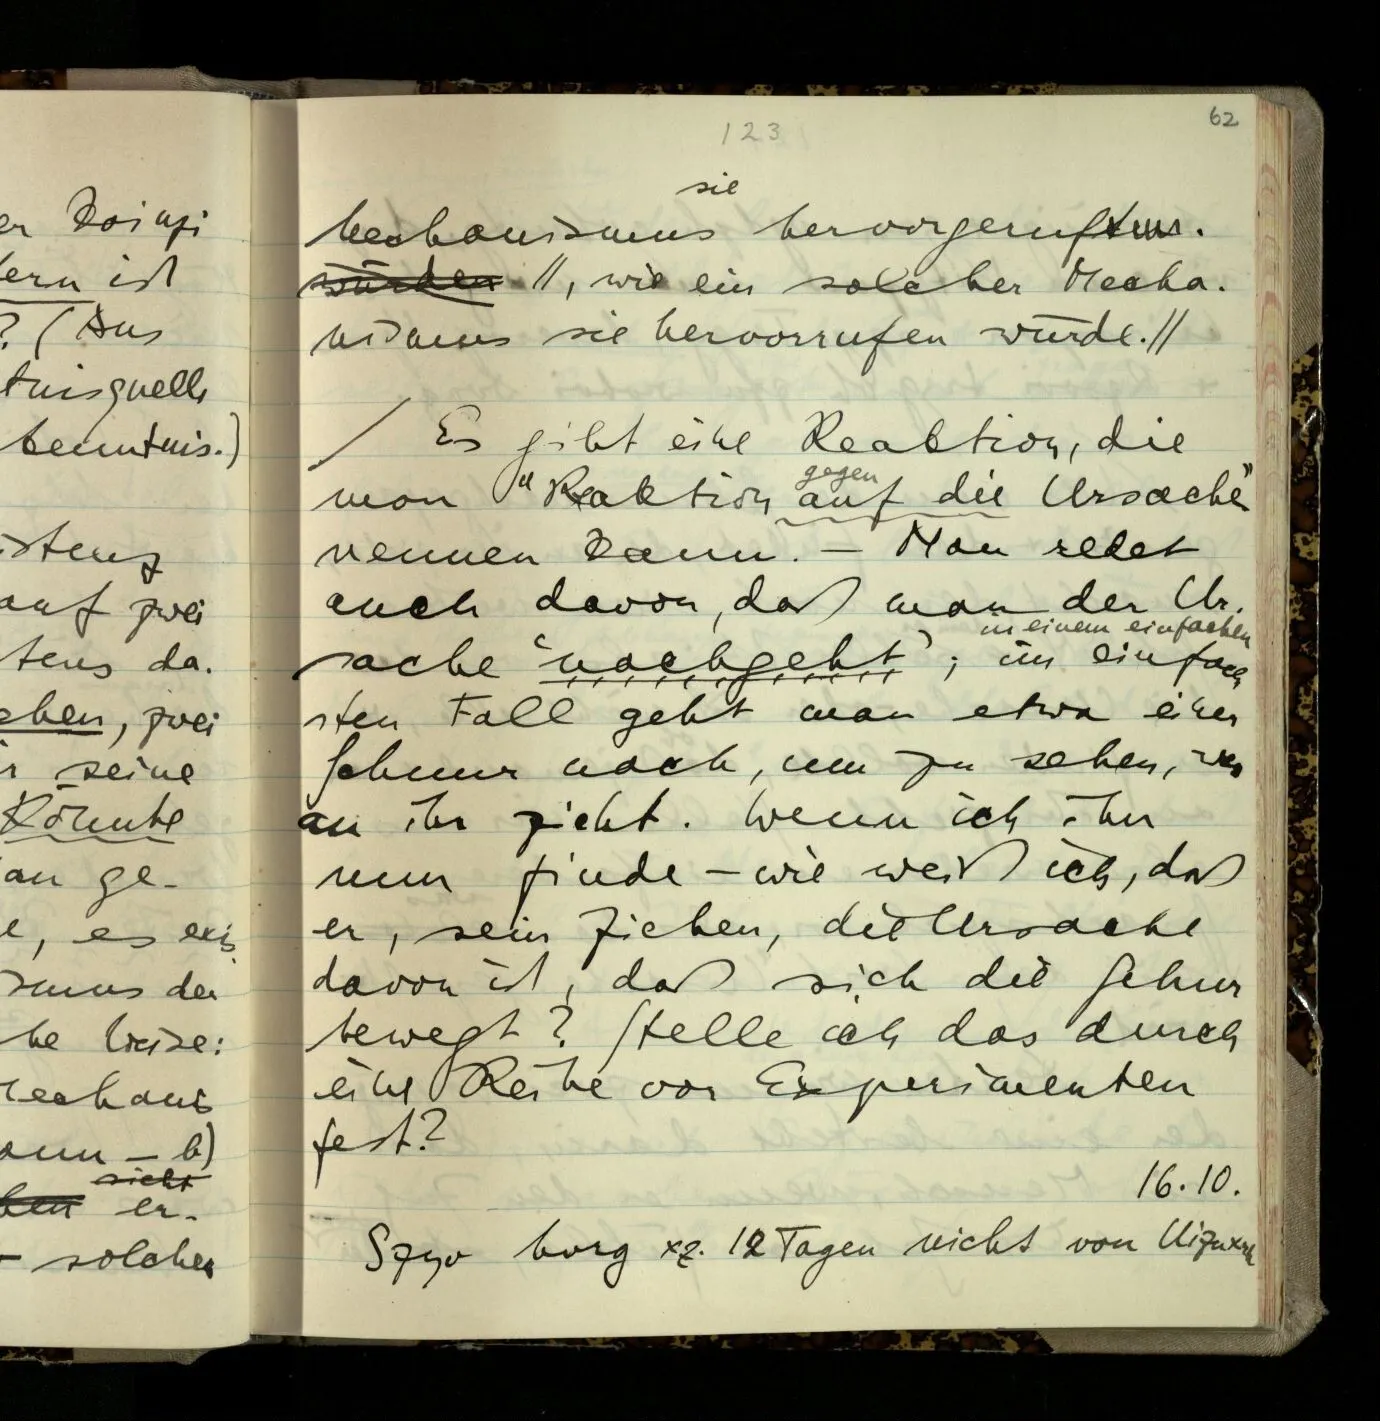 er
ern ist
? (Aus
tnisquelle
kenntnis.)
istenz
auf zwei
tens da.
chen, zwei
r seine
Könnte
an ge-
e, es exis
smus der
he Weise:
Mechanis
ann – b)
nicht
ben er-
– solchen
123
62
sie
Mechanismus hervorgerufen
würden //, wie ein solcher Mecha-
nismus sie hervorrufen würde.//
/ Es gibt eine Reaktion, die
gegen
man "Reaktion auf die Ursache"
nennen kann. – Man redet
auch davon, daß man der Ur-
in einem einfachen
sache 'nachgeht'; im einfach
sten Fall geht man etwa einer
Schnur nach, um zu sehen, wer
an ihr zieht. Wenn ich ihn
nun finde – wie weiß ich, daß
er, sein Ziehen, die Ursache
davon ist, daß sich die Schnur
bewegt? Stelle ich das durch
eine Reihe von Experimenten
fest?
16.10.
xz. 12 Tagen nicht von